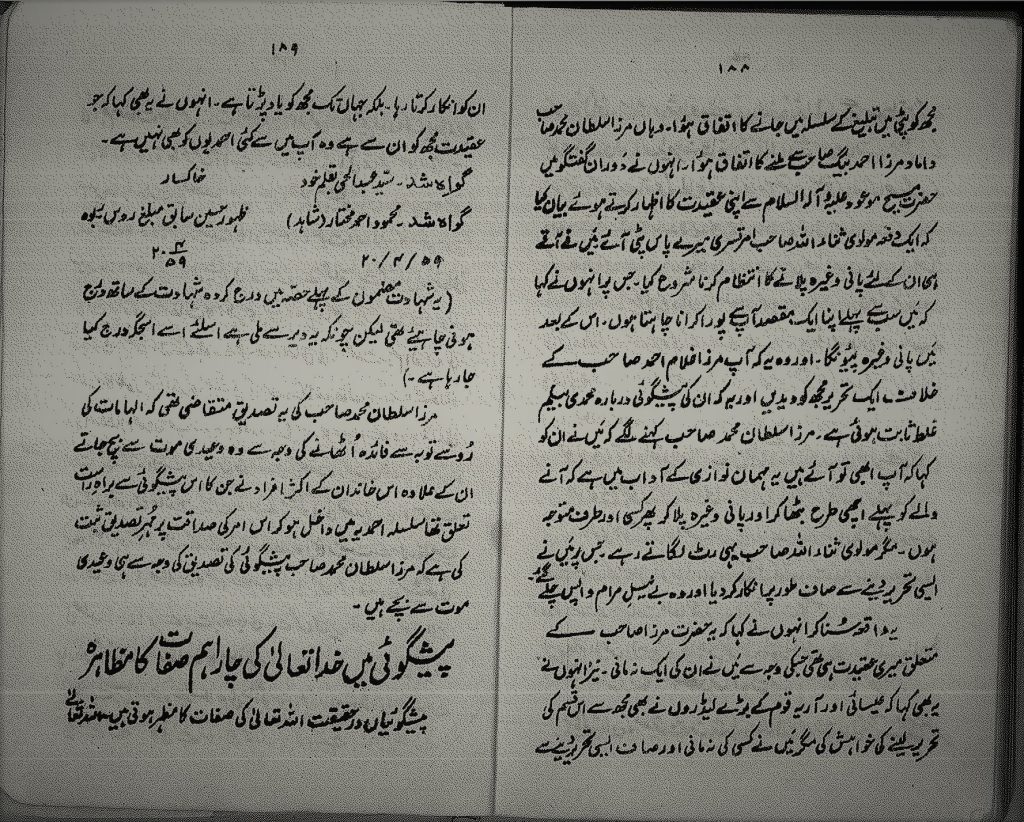 ۱۸۸
مجھ کو پٹی میں تبلیغ کے سلسلہ میں جانے کا اتفاق ہؤا۔ وہاں مرزا سلطان محمد صاحب
داماد مرزا احمد بیگ صاحب سے ملنے کا اتفاق ہوُا۔ انہوں نے دَوران گفتگو میں
حضرت مسیح موعود علیہ الصلوٰۃ والسلام سے اپنی عقیدت کا اظہار کرتے ہوئے بیان کیا
کہ ایک دفعہ مولوی ثناء اللہ صاحب امرتسری میرے پاس پٹی آئے۔ مَیں نے آتے
ہی ان کے لئے پانی وغیرہ پلانے کا انتظام کرنا شروع کیا۔ جس پر انہوں نے کہا
کہ مَیں سب سے پہلے اپنا ایک مقصد آپ سے پورا کرانا چاہتا ہوں۔ اس کے بعد
مَیں پانی وغیرہ پیؤنگا۔ اور وہ یہ کہ آپ مرزا غلام احمد صاحب کے
خلاف ایک تحریر مجھ کو دیدیں اور یہ کہ ان کی پیشگوئی دربارہ محمدی بیگم
غلط ثابت ہوئی ہے۔ مرزا سلطان محمد صاحب کہنے لگے کہ مَیں نے ان کو
کہا کہ آپ ابھی تو آئے ہیں یہ مہمان نوازی کے آداب میں ہے کہ آنے
والے کو پہلے اچھی طرح بٹھا کر اور پانی وغیرہ پلا کر پھر کسی اور طرف متوجہ
ہوں۔ مگر مولوی ثناء اللہ صاحب یہی رٹ لگاتے رہے۔ جس پر مَیں نے
ایسی تحریر دینے سے صاف طور پر انکار کر دیا اور وہ بے نیل مرام واپس چلے گئے۔
یہ واقعہ سُنا کر انہوں نے کہا کہ یہ حضرت مرزا صاحب کے
متعلق میری عقیدت ہی تھی جسکی وجہ سے مَیں نے ان کی ایک نہ مانی۔ نیز انہوں نے
یہ بھی کہا کہ عیسائی اور آریہ قوم کے بڑے لیڈروں نے بھی مجھ سے اس قسم کی
تحریر لینے کی خواہش کی مگر مَیں نے کسی کی نہ مانی اور صاف ایسی تحریر دینے سے
۱۸۹
ان کو انکار کرتا رہا۔ بلکہ جہاں تک مجھ کو یاد پڑتا ہے۔ انہوں نے یہ بھی کہا کہ جو
عقیدت مجھ کو ان سے ہے وہ آپ میں سے کئی احمدیوں کو بھی نہیں ہے۔
گواہ شد۔ سیّد عبدالحی بقلم خود خاکسار
گواہ شد۔ محمود احمد مختار (شاہد) ظہور حسین سابق مبلغ روس ربوہ
۲۰/۴/۵۹ ۲۰ ۴/۵۹
(یہ شہادت مضمون کے پہلے حصّہ میں درج کردہ شہادت کے ساتھ درج
ہونی چاہیئے تھی لیکن چونکہ یہ دیر سے ملی ہے اسلئے اسے اس جگہ درج کیا
جا رہا ہے۔)
مرزا سلطان محمد صاحب کی یہ تصدیق متقاضی تھی کہ الہامات کی
رُو سے توبہ سے فائدہ اُٹھانے کی وجہ سے وہ وعیدی موت سے بچ جاتے
ان کے علاوہ اس خاندان کے اکثر افراد نے جن کا اس پیشگوئی سے براہِ راست
تعلق تھا سلسلہ احمدیہ میں داخل ہو کر اس امر کی صداقت پر مُہر تصدیق ثبت
کی ہے کہ مرزا سلطان محمد صاحب پیشگوئی کی تصدیق کی وجہ سے ہی وعیدی
موت سے بچے ہیں۔
پیشگوئی میں خدا تعالیٰ کی چار اہم صفات کا مظاہرہ
پیشگوئیاں درحقیقت اللہ تعالیٰ کی صفات کا مظہر ہوتی ہیں۔ اللہ تعالیٰ